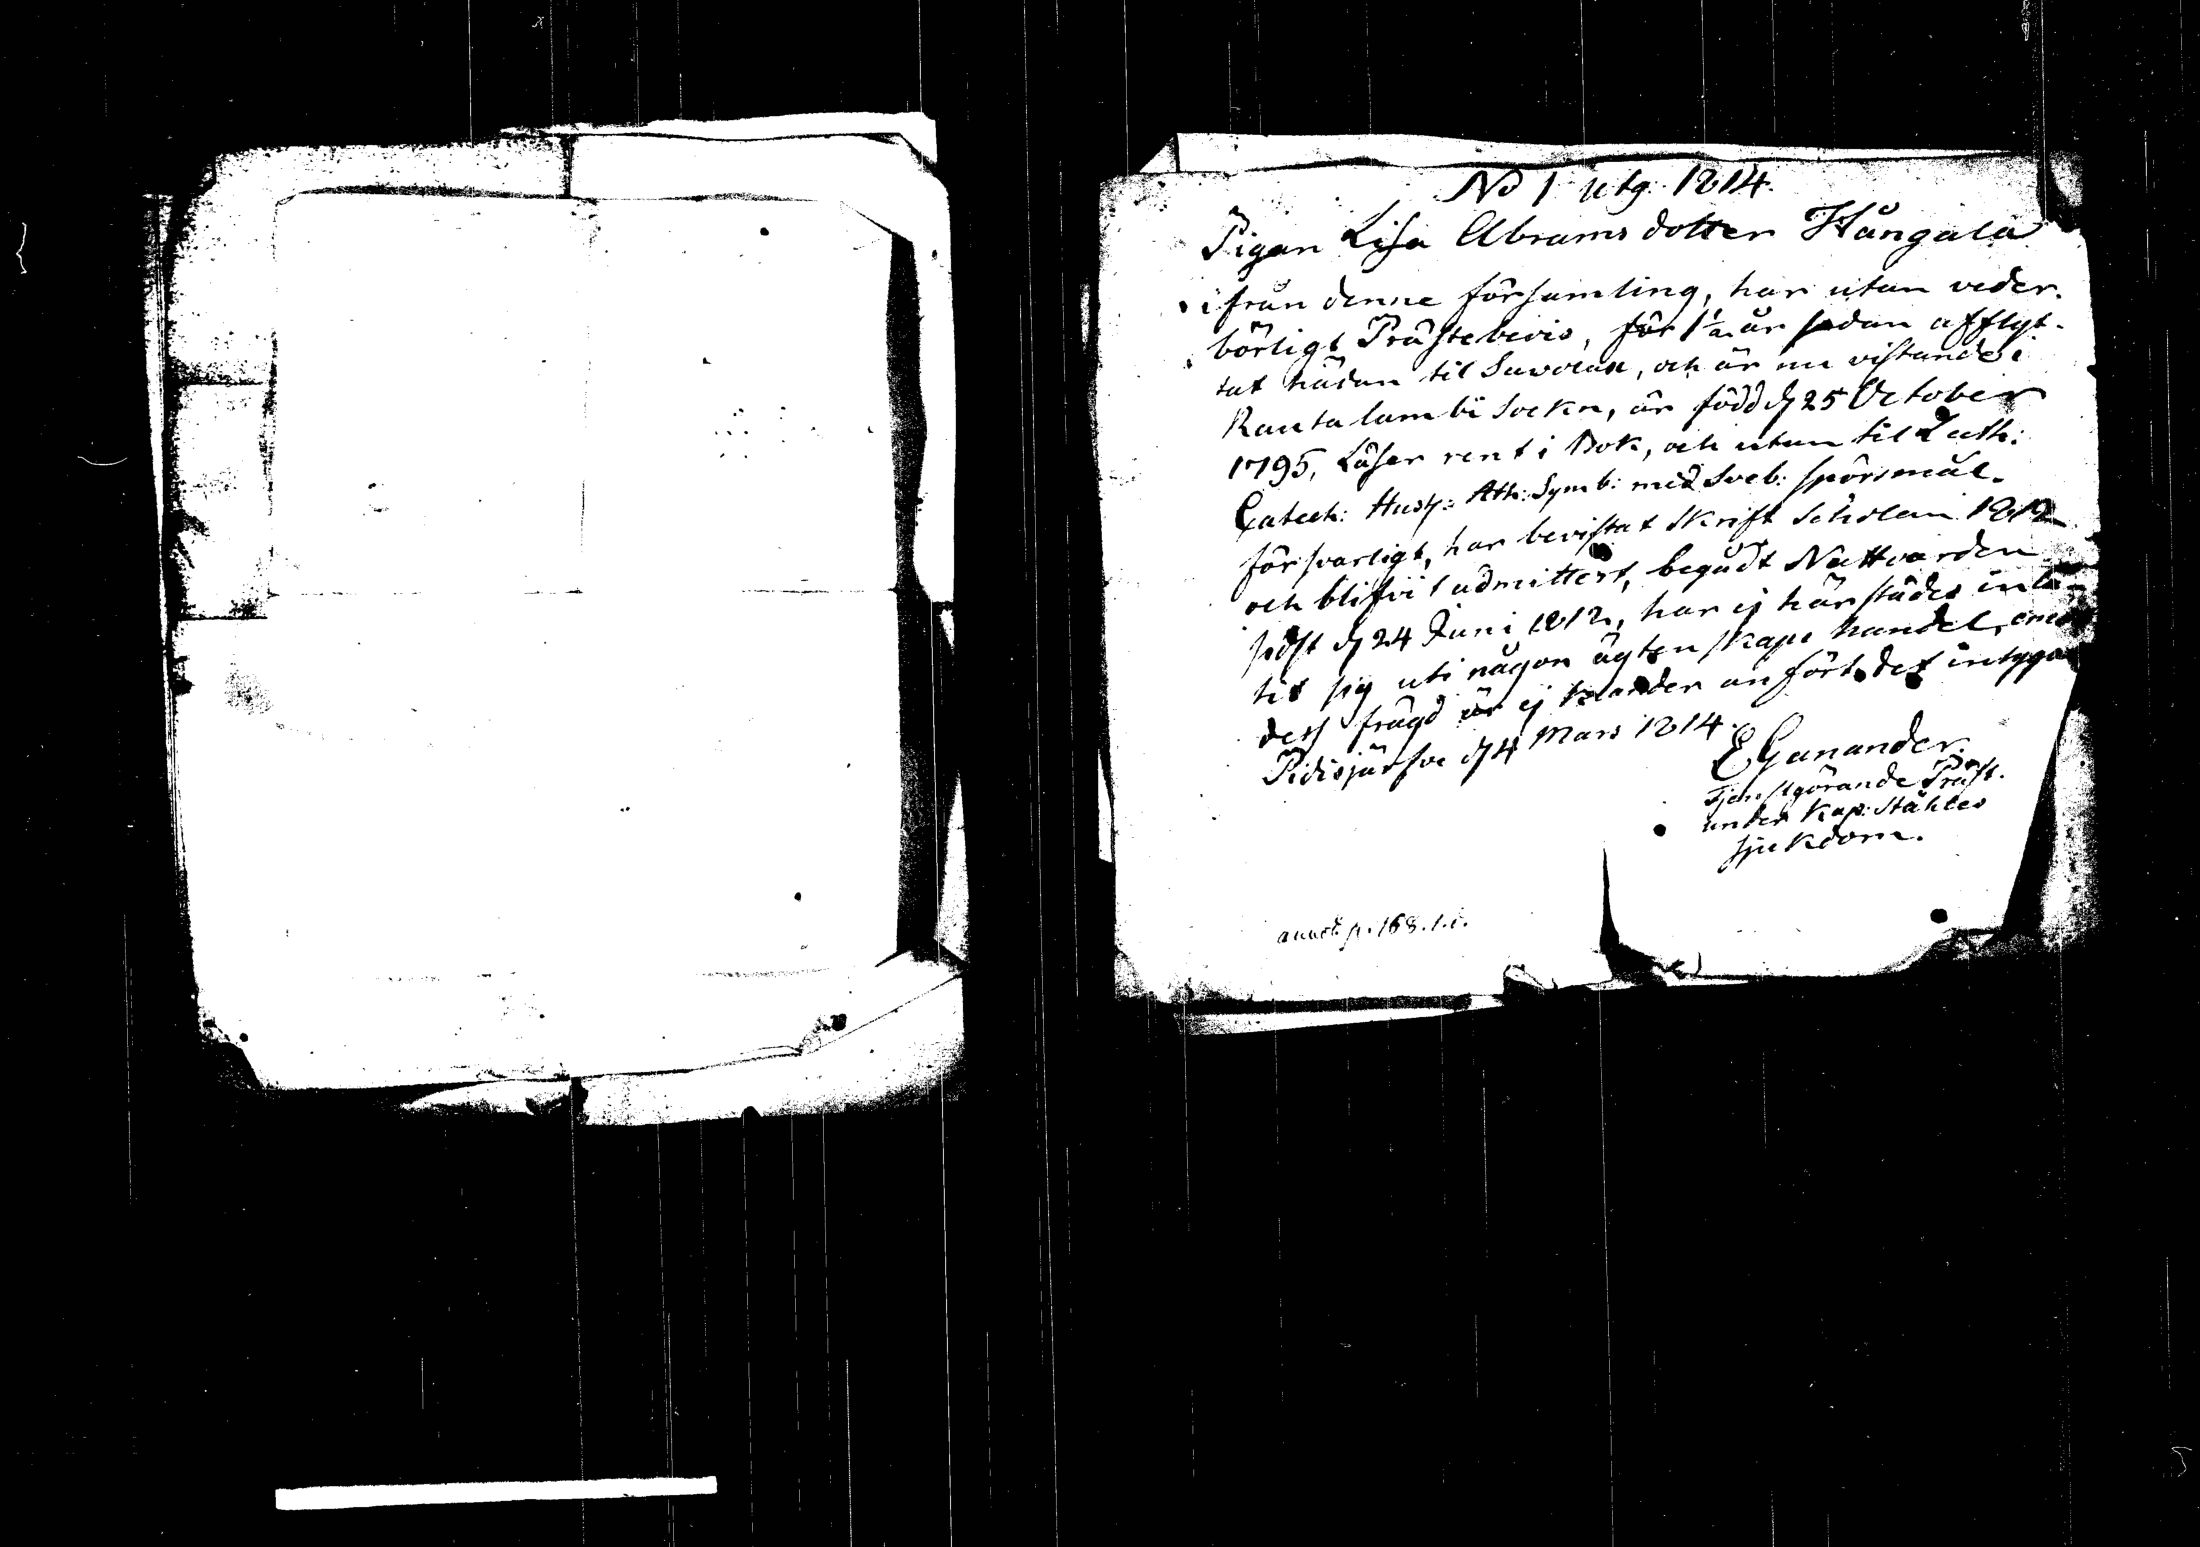 No 1 utg. 1814.
Pigan Lisa Abrams dotter Hångala
ifrån denne församling, har utan veder-
börligt Prästebevis, för 1 1/2 år sedan afflyt-
tat hädan til Savolax, och är nu vistande i
Rautalambi Sockn, är född d 25 October
1795, Läser rent i Bok, och utan til Luth:
Catech: Hust: Ath: Symb: med Sveb: spörsmål.
försvarligt, har bevistat Skrift Scholan 1812
och blifvit admitterd, begådt Nattvarden
sidst d 24 Juni 1812, har ej härstädes inlå-
tit sig uti någon ägtenskaps handel, emot
dess frägd är ej klander anfört, det intygar
Pidisjärfve d 4 Mars 1814.
E Ganander.
Tjenstgörande Präst.
under Kap: Ståhles
sjukdom.
annot. p. 168. 1. i.